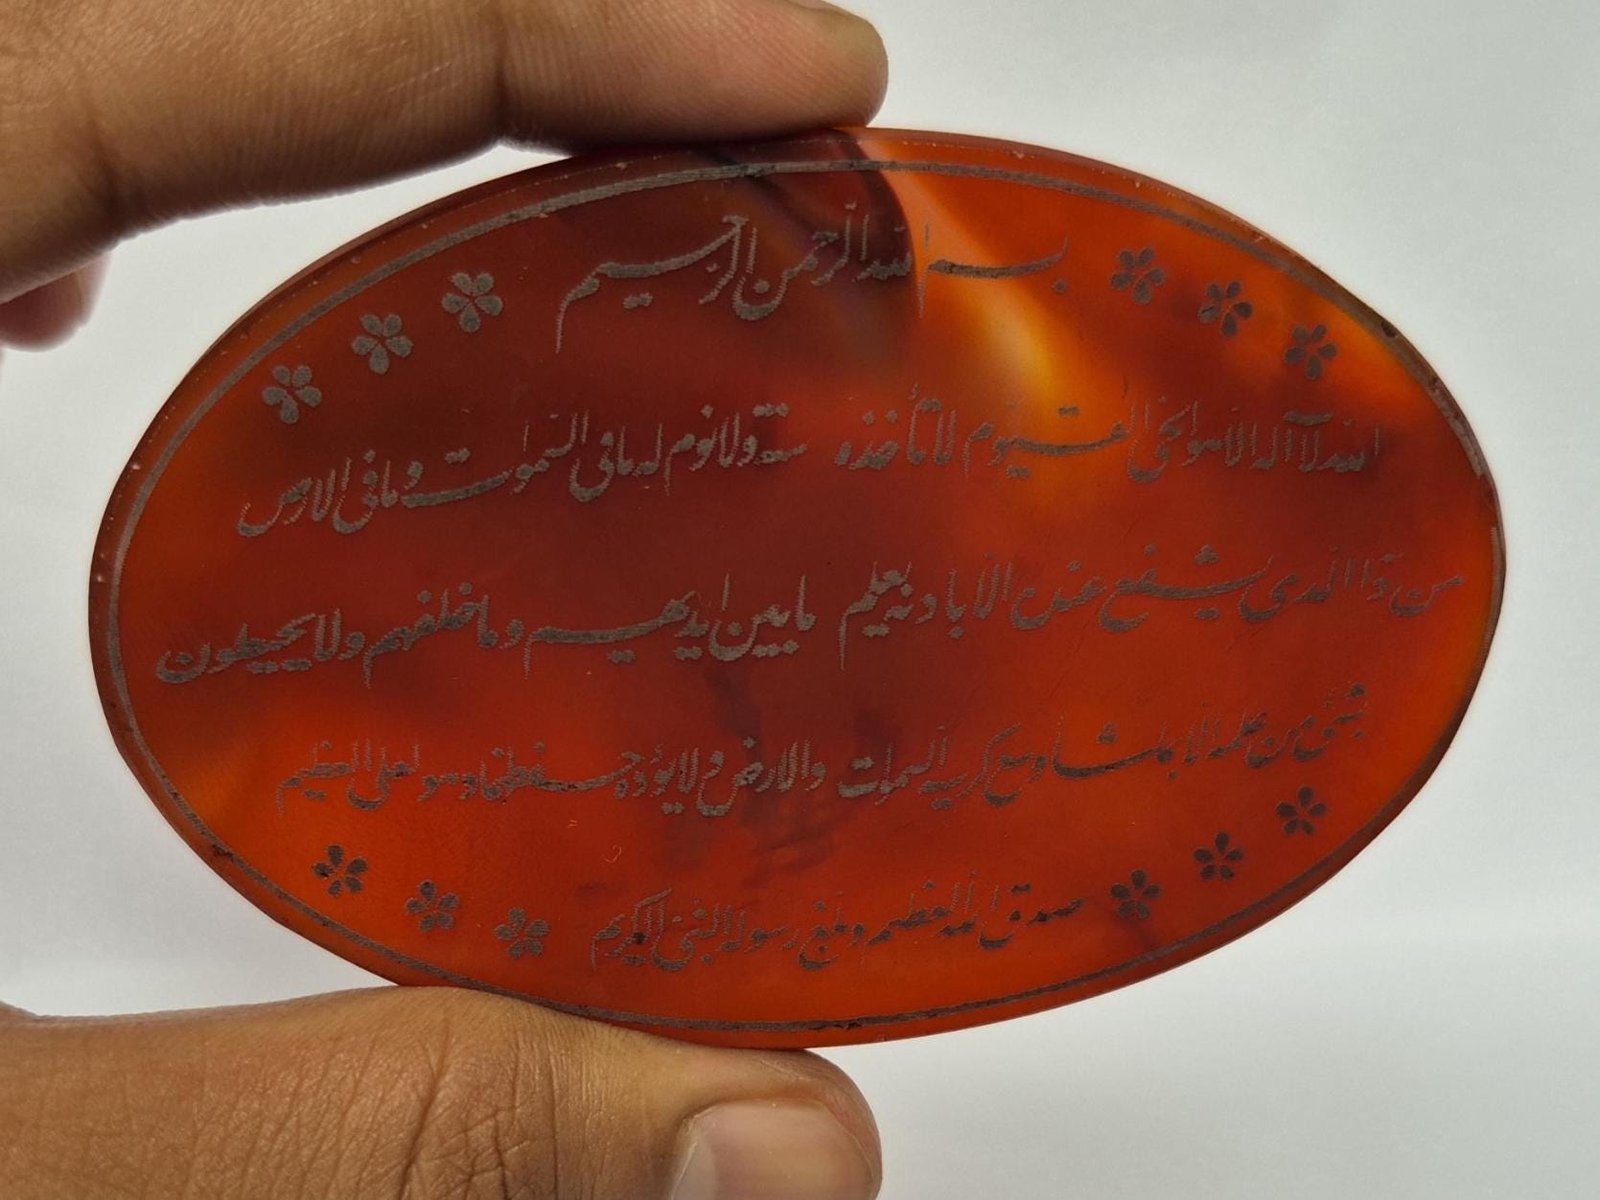 بسم الله الرحمن الرحيم
الله لا اله الا هو الحي القيوم لا تأخذه سنة ولا نوم له ما في السموات وما في الارض
من ذا الذي يشفع عنده الا باذنه يعلم ما بين ايديهم وما خلفهم ولا يحيطون
بشئ من علمه الا بما شاء وسع كرسيه السموات والارض ولا يؤده حفظهما وهو العلي العظيم
صدق الله العظيم وبلغ رسوله النبي الكريم